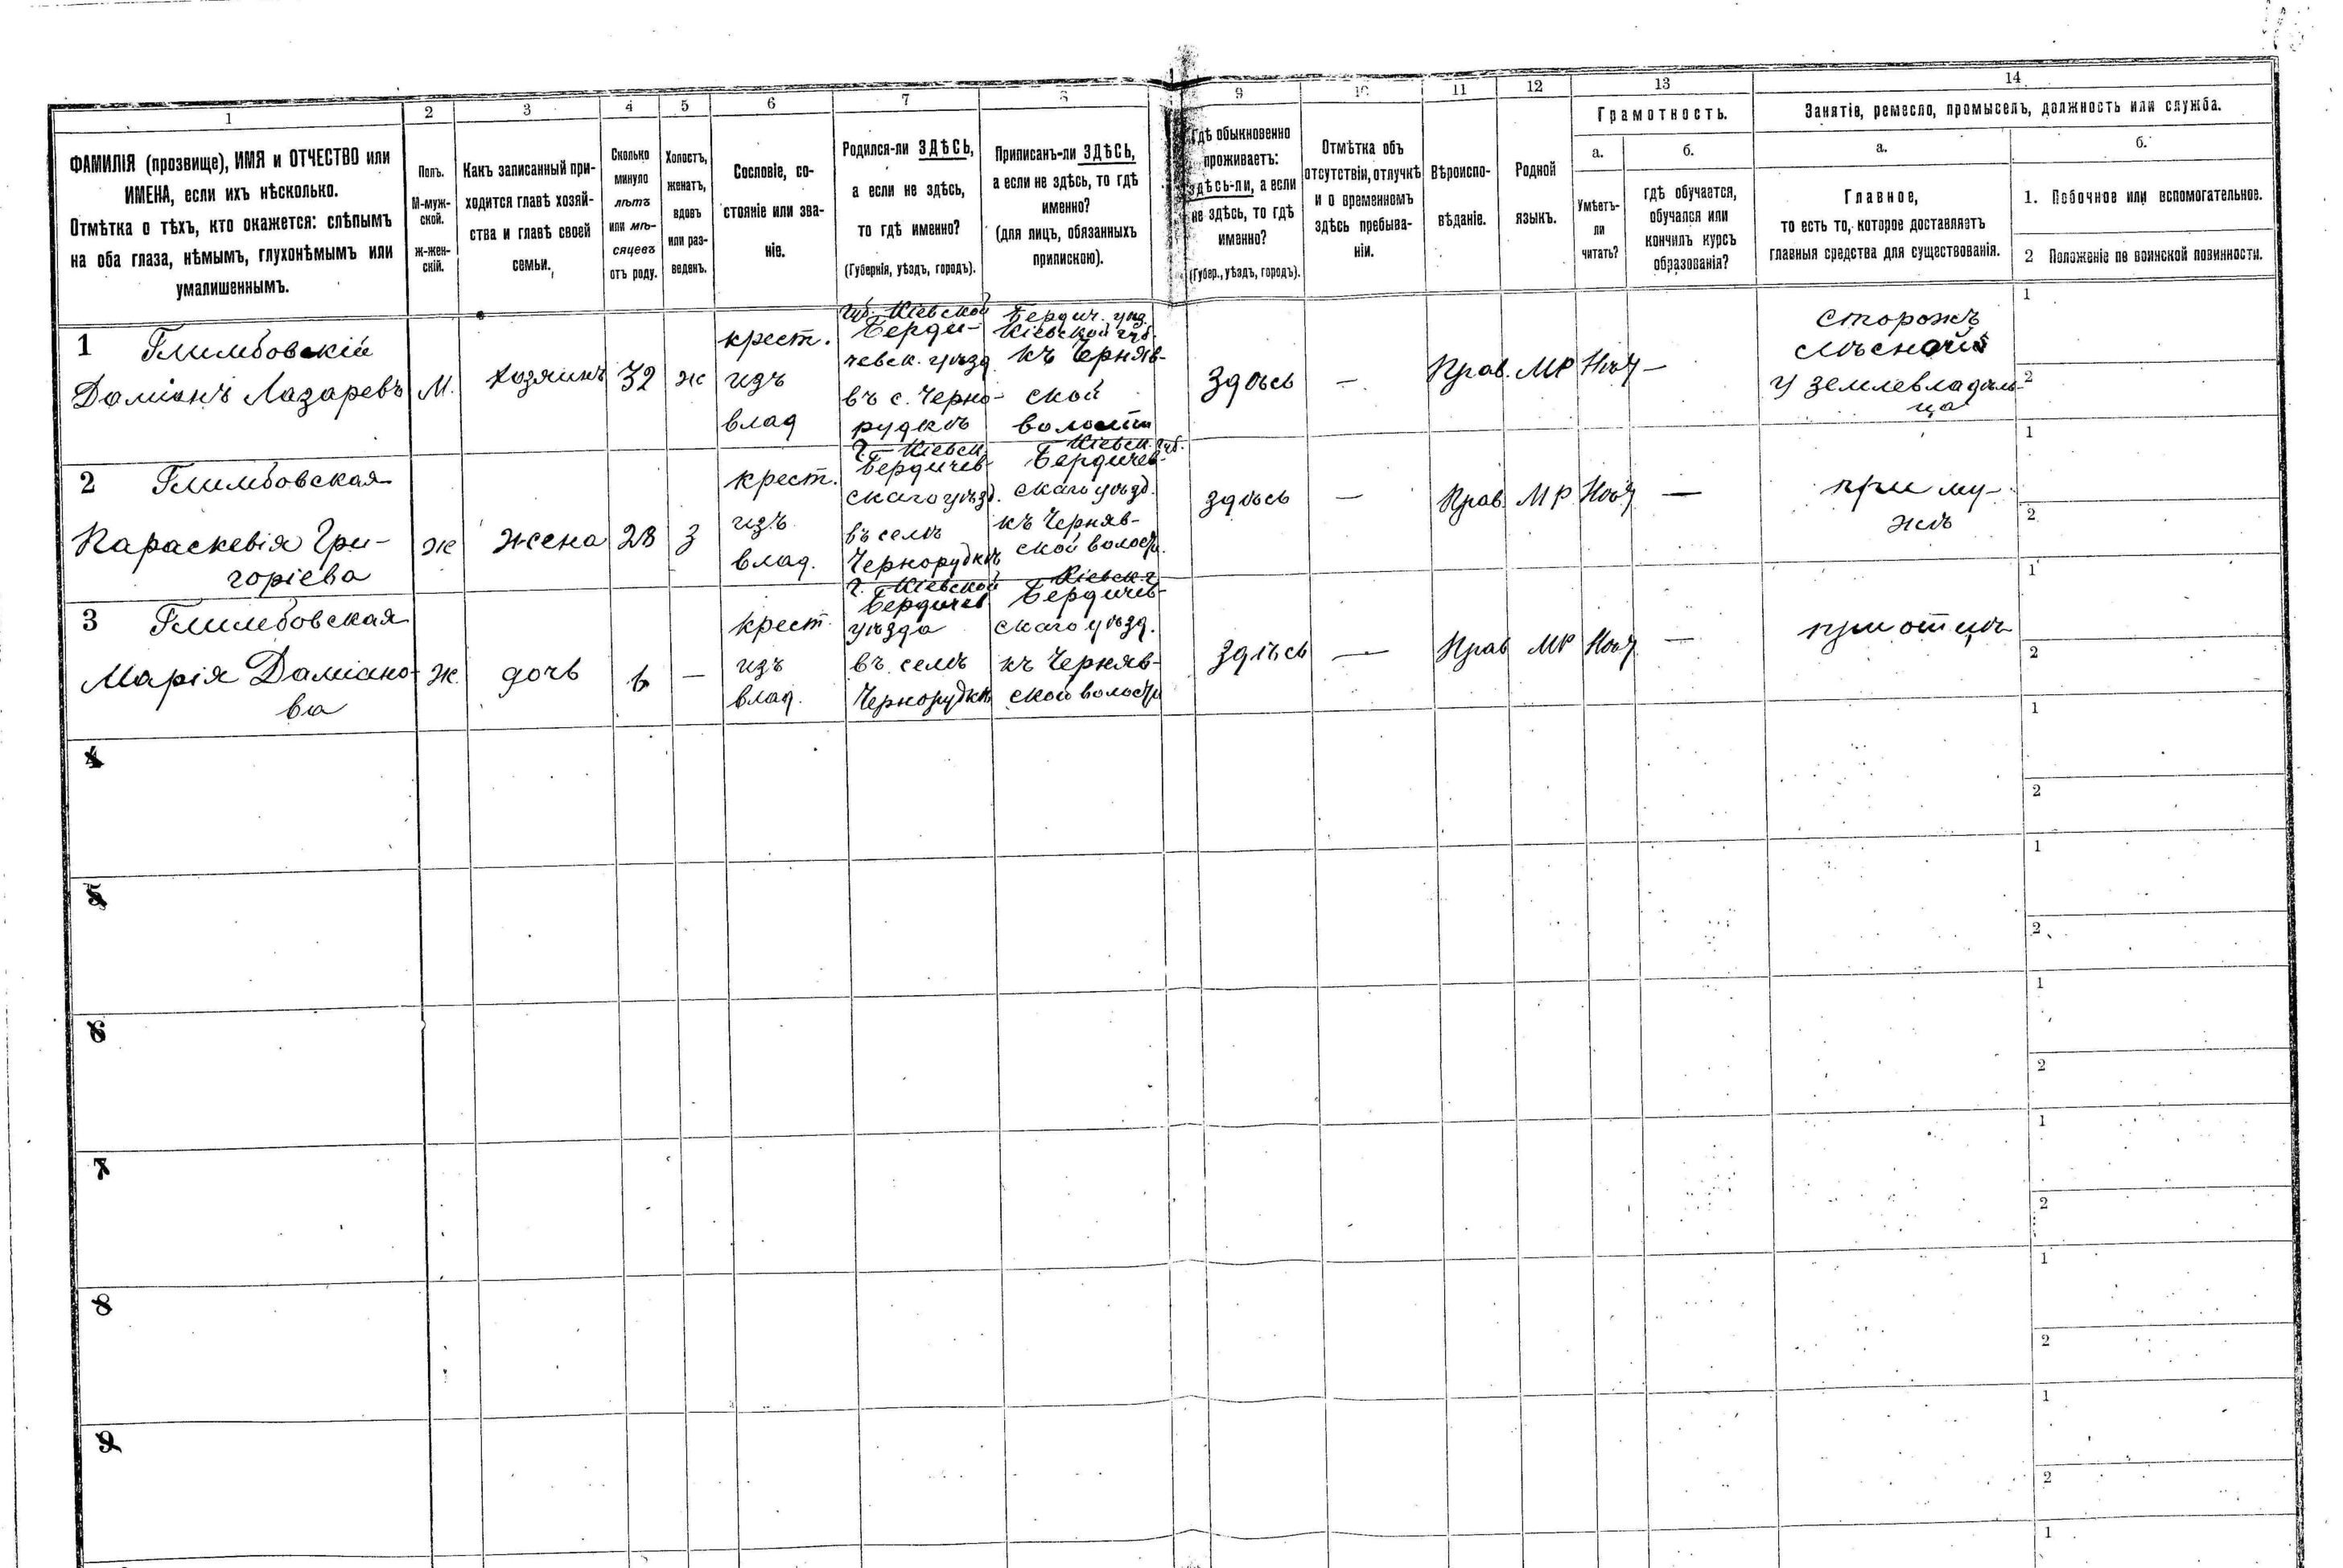 1
2
3
4
5
6
7
8
9
10
11
12
13
14
ФАМИЛІЯ (прозвище), ИМЯ и ОТЧЕСТВО или
ИМЕНА, если ихъ нѣсколько.
Отмѣтка о тѣхъ, кто окажется: слѣпымъ
на оба глаза, нѣмымъ, глухонѣмымъ или
умалишеннымъ.
Полъ.
М-муж-
ской.
Ж-жен-
скій.
Какъ записанный при-
ходится главѣ хозяй-
ства и главѣ своей
семьи.
Сколько
минуло
лѣтъ
или мѣ-
сяцевъ
отъ роду.
Холостъ,
женатъ,
вдовъ
или раз-
веденъ.
Сословіе, со-
стояніе или зва-
ніе.
Родился-ли ЗДѢСЬ,
а если не здѣсь,
то гдѣ именно?
(Губернія, уѣздъ, городъ).
Приписанъ-ли ЗДѢСЬ,
а если не здѣсь, то гдѣ
именно?
(для лицъ, обязанныхъ
припискою).
Гдѣ обыкновенно
проживаетъ:
здѣсь-ли, а если
не здѣсь, то гдѣ
именно?
(Губер., уѣздъ, городъ).
Отмѣтка объ
отсутствіи, отлучкѣ
и о временномъ
здѣсь пребыва-
ніи.
Вѣроиспо-
вѣданіе.
Родной
языкъ.
Грамотность.
а.
Умѣетъ-
ли
читать?
б.
гдѣ обучается,
обучался или
кончилъ курсъ
образованія?
Занятіе, ремесло, промыселъ, должность или служба.
а.
Главное,
то есть то, которое доставляетъ
главныя средства для существованія.
б.
1. Побочное или вспомогательное.
2 Положеніе по воинской повинности.
1 Глимбовскій
Доміанъ Лазаревъ
М.
хозяинъ
32
ж
крест.
изъ
влад
Губ. Кіевской
Берди-
чевск. уѣзд
въ с. Черно-
рудкѣ
Бердич. уѣзд
Кіевской губ.
къ Черняв-
ской
волости
здѣсь
—
Прав.
МР
Нѣт
—
сторожъ
лѣсной
у землевладѣль-
ца
1
2
2 Глимбовская
Параскевія Гри-
горіева
ж
жена
28
з
крест.
изъ
влад.
г. Кіевск.
Бердичев-
скаго уѣзд.
въ селѣ
Чернорудкѣ
Кіевск. губ.
Бердичев-
скаго уѣзд.
къ Черняв-
ской волости.
здѣсь
—
Прав.
МР
Нѣт
—
при му-
жѣ
1
2
3 Глимбовская
Марія Даміано-
ва
ж.
дочь
6
—
крест.
изъ
влад.
г. Кіевской
Бердичев
уѣзда
въ селѣ
Чернорудкѣ
Кіевск. г.
Бердичев-
скаго уѣзд.
къ Черняв-
ской волости
здѣсь
—
Прав
МР
Нѣт
—
при отцѣ
1
2
4
1
2
5
1
2
6
1
2
7
1
2
8
1
2
9
1
2
1